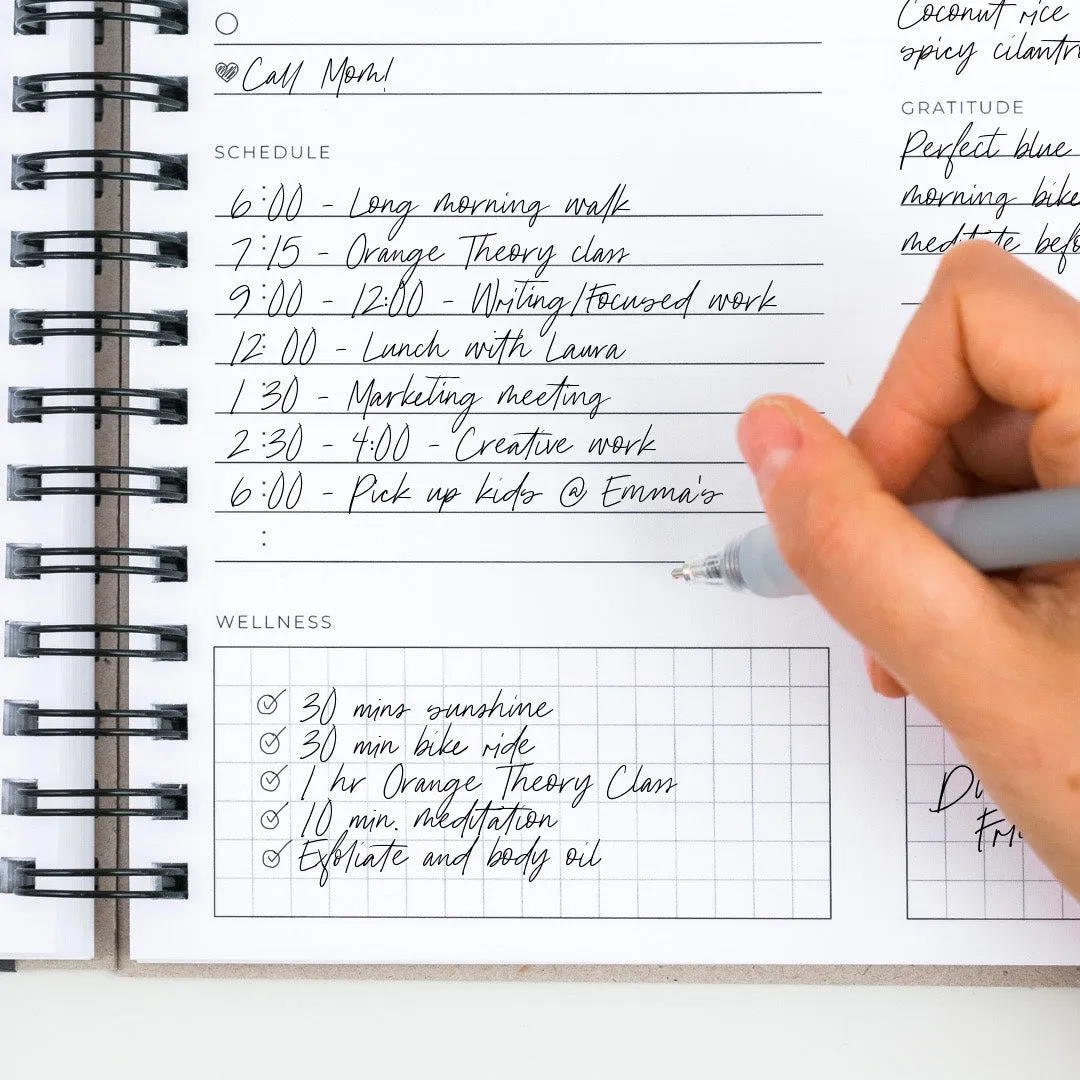 Call Mom!
SCHEDULE
6:00 - Long morning walk
7:15 - Orange Theory class
9:00 - 12:00 - Writing/Focused work
12:00 - Lunch with Laura
1:30 - Marketing meeting
2:30 - 4:00 - Creative work
6:00 - Pick up kids @ Emma's
:
WELLNESS
30 mins sunshine
30 min bike ride
1 hr Orange Theory Class
10 min. meditation
Exfoliate and body oil
Coconut rice
spicy
GRATITUDE
Perfect blue
morning bike
meditate